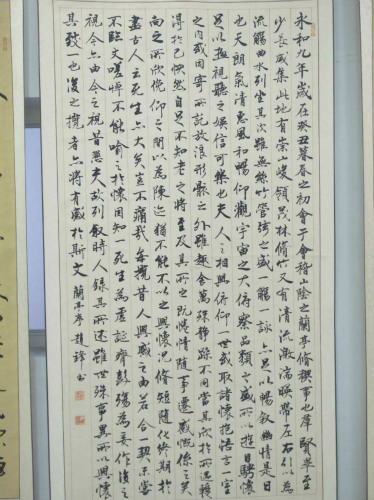 永和九年歲在癸丑暮春之初會于會稽山陰之蘭亭修禊事也羣賢畢至
少長咸集此地有崇山峻領茂林脩竹又有清流激湍暎帶左右引以為
流觴曲水列坐其次雖無絲竹管弦之盛一觴一詠亦足以暢敘幽情是日
也天朗氣清惠風和暢仰觀宇宙之大俯察品類之盛所以遊目騁懷
足以極視聽之娛信可樂也夫人之相與俯仰一世或取諸懷抱悟言一室
之內或因寄所託放浪形骸之外雖趣舍萬殊靜躁不同當其欣於所遇暫
得於己怏然自足不知老之將至及其所之既惓情隨事遷感慨係之矣
向之所欣俛仰之間以為陳迹猶不能不以之興懷況修短隨化終期於
盡古人云死生亦大矣豈不痛哉每攬昔人興感之由若合一契未嘗
不臨文嗟悼不能喻之於懷固知一死生為虛誕齊彭殤為妄作後之
視今亦由今之視昔悲夫故列敘時人錄其所述雖世殊事異所以興懷
其致一也後之攬者亦將有感於斯文 蘭亭序 書